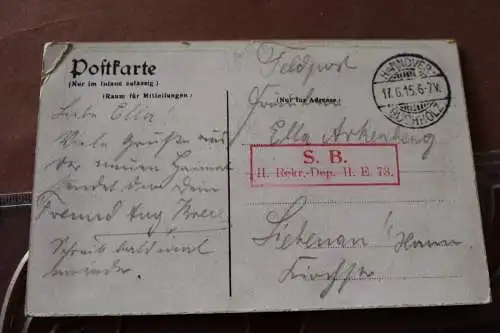 Postkarte
(Nur im Inland zulässig.)
(Raum für Mitteilungen)
Liebe Ella!
Viele Grüße aus
der neuen Heimat
sendet dir dein
Freund Aug
Schreib bald mal
wieder.
Feldpost
HANNOVER
17.6.15.6-7V.
BUCHHOLZ
(Nur für Adresse)
Fräulein
Ella
S. B.
II. Rekr.-Dep. II. E. 73.
Liebenau / Hann.
Kirchstr.